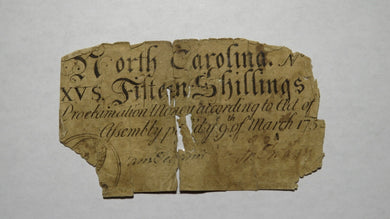 North Carolina. N
XVS. Fifteen Shillings
Proclamation Money according to Act of
Assembly p 9th of March 175